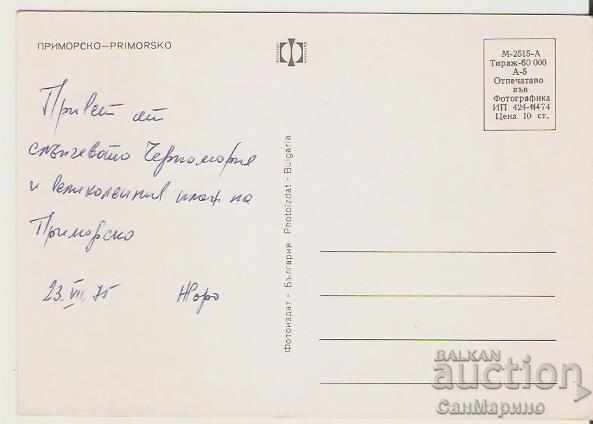 ПРИМОРСКО—PRIMORSKO
М-2515-А
Тираж-60 000
А-5
Отпечатано
във
Фотографика
ИП 424-11474
Цена 10 ст.
Привет от
слънчевото Черноморие
и великолепния плаж на
Приморско
23.VII.75 Жоро
Фотоиздат - България Photoizdat - Bulgaria
BALKAN
auction
СанМарино